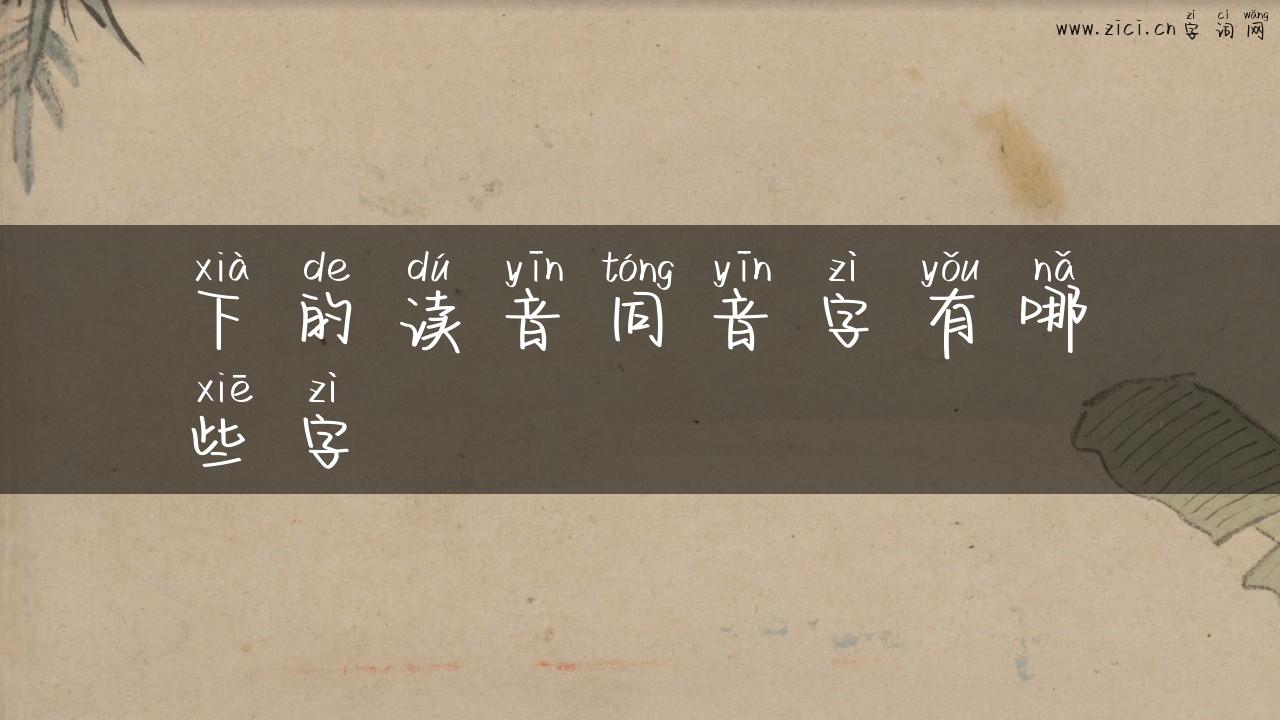 zì cí wǎng
www.zici.cn 字词网
xià de dú yīn tóng yīn zì yǒu nǎ
下的读音同音字有哪
xiē zì
些字